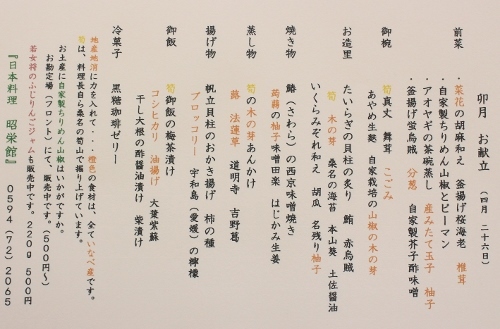 卯月　お献立　（四月　二十六日）
前菜　・菜花の胡麻和え　釜揚げ桜海老　椎茸
・自家製ちりめん山椒とピーマン
・アオヤギの茶碗蒸し　産みたて玉子　柚子
・釜揚げ蛍烏賊　分葱　自家製芥子酢味噌
御椀　筍真丈　舞茸　こごみ
あやめ生麩　自家栽培の山椒の木の芽
お造里　たいらぎの貝柱の炙り　鮪　赤烏賊
筍　木の芽　桑名の海苔　本山葵　土佐醤油
いくらみぞれ和え　胡瓜　名残り柚子
焼き物　鰆（さわら）の西京味噌焼き
蒟蒻の柚子味噌田楽　はじかみ生姜
蒸し物　筍の木の芽あんかけ
蕗　法蓮草　道明寺　吉野葛
揚げ物　帆立貝柱のおかき揚げ　柿の種
ブロッコリー　宇和島（愛媛）の檸檬
御飯　筍御飯の梅茶漬け
コシヒカリ　油揚げ　大葉紫蘇
干し大根の酢醤油漬け　柴漬け
冷菓子　黒糖珈琲ゼリー
地産地消に力を入れて・・・橙色の食材は、全ていなべ産です。
筍は、料理長自ら桑名の筍山で掘り上げています。
お土産に自家製ちりめん山椒はいかがですか。
お勘定場（フロント）にて、販売中です。（５００円～）
若女将のふじりんごジャムも販売中です。２２０ｇ　５００円
『日本料理　昭栄館』　０５９４（７２）２０６５